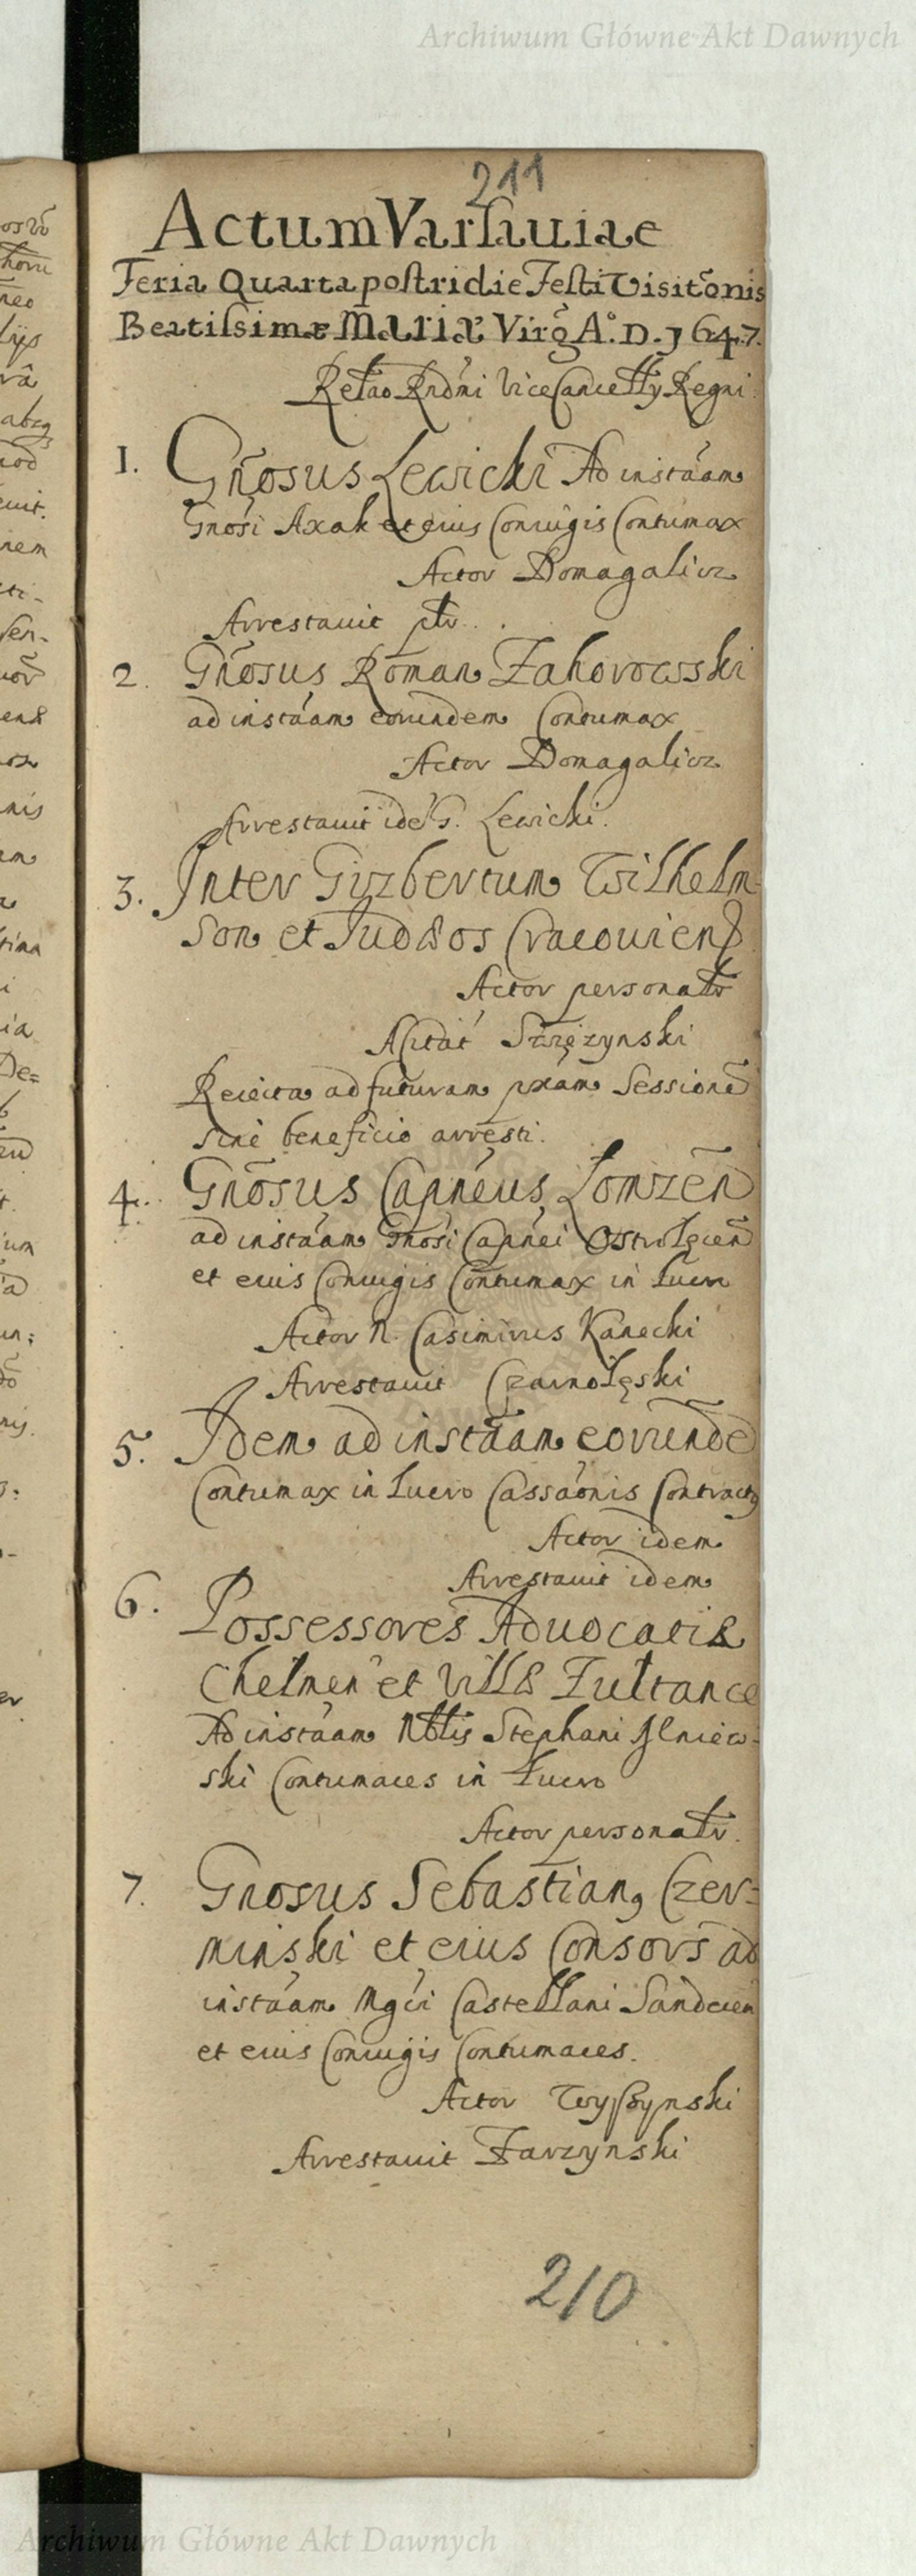 Archiwum Główne Akt Dawnych
211
Actum Varsauiae
Feria Quarta postridie Festi Visitõnis
Beatissimæ Mariæ Virg̃ A.° D. 1647.
Relão Rndi ViceCancellÿ Regni
1. Gnõsus Lewicki Ad instãam
Gnõsi Axak et eius Coniugis Contumax
Actor Domagalicz
Arrestauit ptr.
2. Gnõsus Roman Zahorowski
ad instãam eorundem Contumax
Actor Domagalicz
Arrestauit idẽ G. Lewicki.
3. Inter Gyzbertum Wilhelm-
son et Judæos Cracouien̄
Actor personałr
Acitat́ Strzęzynski
Reiecta ad futuram pxam Sessionẽ
sine beneficio arresti.
4. Gnõsus Capnéus Lomzeñ
ad instãam Gnõsi Capnéi Ostrolęceñ
et eius Coniugis Contumax in Lucro
Actor N. Casimirus Kanecki
Arrestauit Czarnolęski
5. Idem ad instãam eorundẽ
Contumax in Lucro Cassãonis Contractꝰ
Actor idem
Arrestauit idem
6. Possessores Aduocatiæ
Chelmeñ et Villæ Zultance
Ad instãam Nblis Stephani Ilniew-
ski Contumaces in Lucro
Actor personałr.
7. Gnosus Sebastianꝰ Czer-
minski et eius Consors ad
instãam Mgci Castellani Sandecen̄
et eius Coniugis Contumaces.
Actor Wyszynski
Arrestauit Zarzynski
210
Archiwum Główne Akt Dawnych